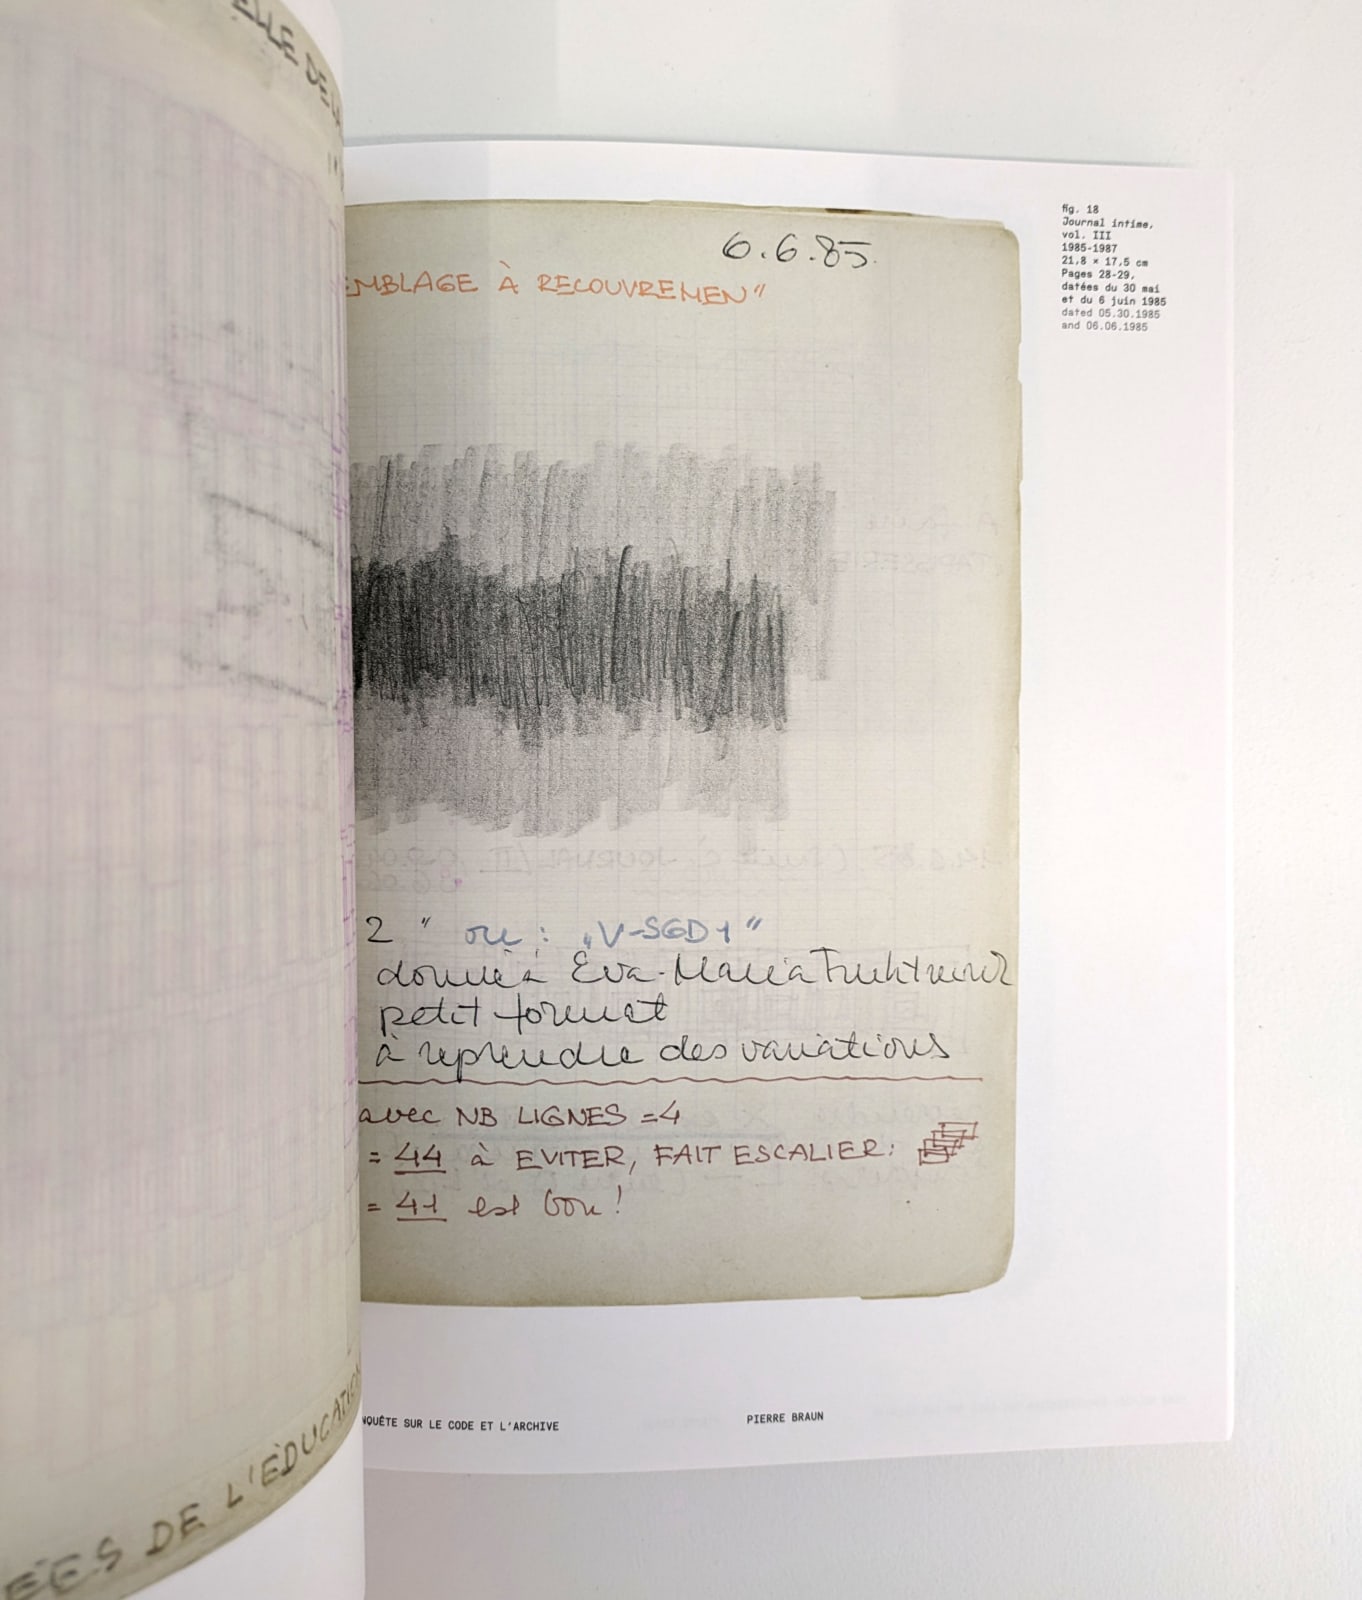 ÉES DE L'ÉDUCATION
6.6.85.
EMBLAGE À RECOUVREMEN"
2 " ou : „V-SGD1"
donné à Eva-Maria Fruhtrunk
petit format
à reprendre des variations
avec NB LIGNES =4
= 44 à EVITER, FAIT ESCALIER:
= 41 est bon !
fig. 18
Journal intime,
vol. III
1985-1987
21,8 × 17,5 cm
Pages 28-29,
datées du 30 mai
et du 6 juin 1985
dated 05.30.1985
and 06.06.1985
NQUÊTE SUR LE CODE ET L'ARCHIVE
PIERRE BRAUN